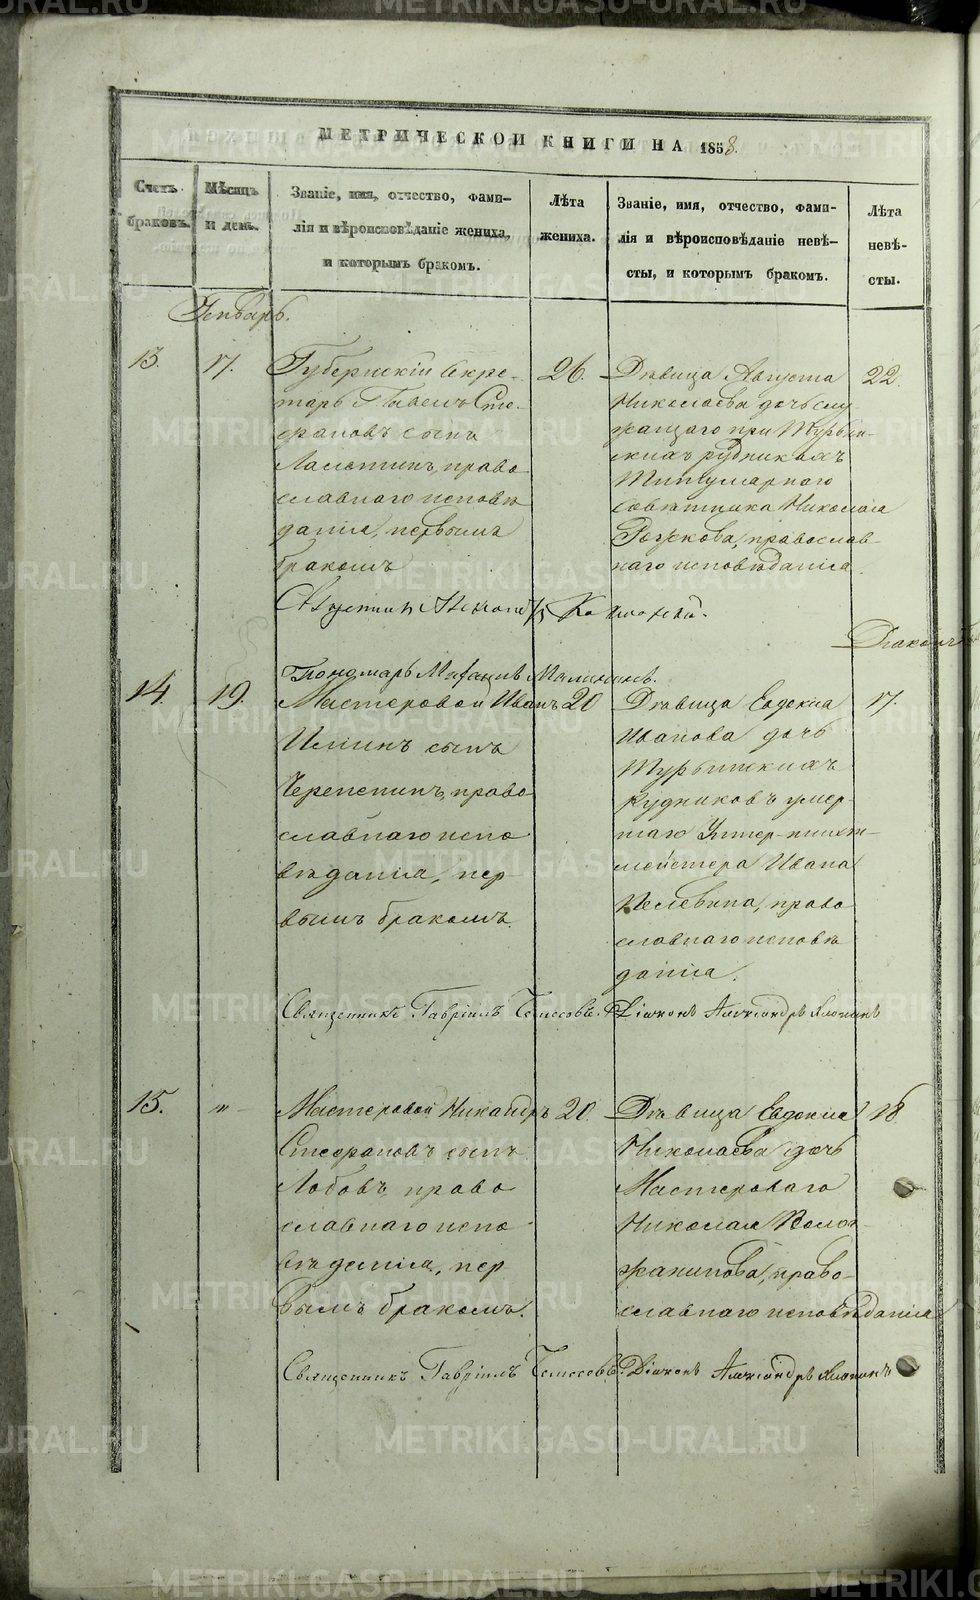 МЕТРИЧЕСКОЙ КНИГИ НА 1858.
Счетъ браковъ.
Мѣсяцъ и день.
Званіе, имя, отчество, фами-
лія и вѣроисповѣданіе жениха,
и которымъ бракомъ.
Лѣта жениха.
Званіе, имя, отчество, фами-
лія и вѣроисповѣданіе невѣ-
сты, и которымъ бракомъ.
Лѣта невѣ-
сты.
Генварь.
13. 17.
Губернскій Секре-
тарь Павелъ Сте-
фановъ сынъ
Лалетинъ, право
славнаго исповѣ
данія, первымъ
бракомъ
26.
Дѣвица Августа
Николаева дочь слу
жащаго при Турьин-
скихъ рудникахъ
Титулярнаго
Совѣтника Николая
Рожкова, православ-
наго исповѣданія.
22.
Діаконъ
Пономарь Малининъ.
14. 19.
Мастеровой Иванъ
Ильинъ сынъ
Черепенинъ, право
славнаго испо
вѣданія, пер
вымъ бракомъ.
20
Дѣвица Евдокія
Иванова дочь
Турьинскихъ
рудниковъ умер-
шаго Унтер-шихт-
мейстера Ивана
право
славнаго исповѣ
данія.
17.
Священникъ Гавріилъ Діаконъ Александръ Яхонтовъ
15. "
Мастеровой Никандръ
Стефановъ сынъ
Лобовъ, право
славнаго испо
вѣданія, пер
вымъ бракомъ.
20.
Дѣвица Евдокія
Николаева дочь
Мастероваго
Николая Волог-
жанинова, право-
славнаго исповѣданія
18.
Священникъ Гавріилъ Діаконъ Александръ
METRIKI.GASO-URAL.RU